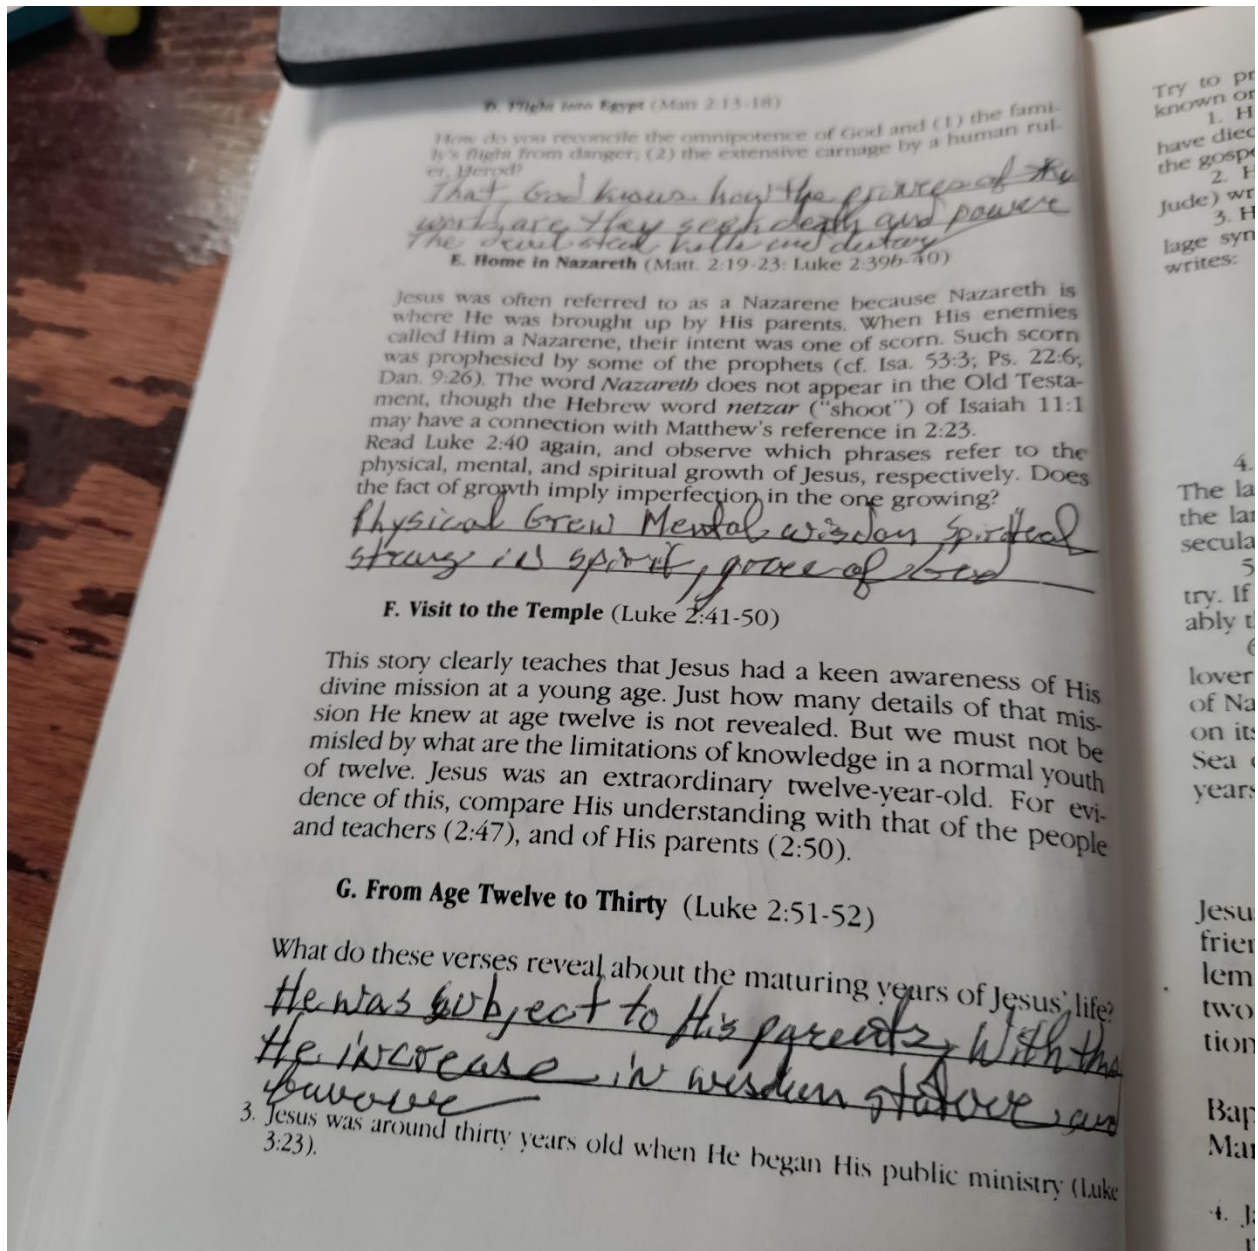 D. Flight into Egypt (Matt 2:13-18)
How do you reconcile the omnipotence of God and (1) the fami-
ly's flight from danger; (2) the extensive carnage by a human rul-
er, Herod?
That God knows how the princes of the
world are they seek death and powere
The devil steal kille and
E. Home in Nazareth (Matt. 2:19-23: Luke 2:39b-40)
Jesus was often referred to as a Nazarene because Nazareth is
where He was brought up by His parents. When His enemies
called Him a Nazarene, their intent was one of scorn. Such scorn
was prophesied by some of the prophets (cf. Isa. 53:3; Ps. 22:6;
Dan. 9:26). The word Nazareth does not appear in the Old Testa-
ment, though the Hebrew word netzar ("shoot") of Isaiah 11:1
may have a connection with Matthew's reference in 2:23.
Read Luke 2:40 again, and observe which phrases refer to the
physical, mental, and spiritual growth of Jesus, respectively. Does
the fact of growth imply imperfection in the one growing?
Physical Grew Mental wisdon Spiriteal
strong in spirit, grace of God
F. Visit to the Temple (Luke 2:41-50)
This story clearly teaches that Jesus had a keen awareness of His
divine mission at a young age. Just how many details of that mis-
sion He knew at age twelve is not revealed. But we must not be
misled by what are the limitations of knowledge in a normal youth
of twelve. Jesus was an extraordinary twelve-year-old. For evi-
dence of this, compare His understanding with that of the people
and teachers (2:47), and of His parents (2:50).
G. From Age Twelve to Thirty (Luke 2:51-52)
What do these verses reveal about the maturing years of Jesus' life?
He was subject to His parents, With this
He increase in wisdom statove, and
favoure
3. Jesus was around thirty years old when He began His public ministry (Luke
3:23).
Try to pr
known or
1. H
have died
the gospe
2. H
Jude) wr
3. H
lage syn
writes:
4.
The la
the lan
secula
5
try. If
ably t
6
lover
of Na
on its
Sea
years
Jesu
frien
lem
two
tion
Bap
Mar
4. J